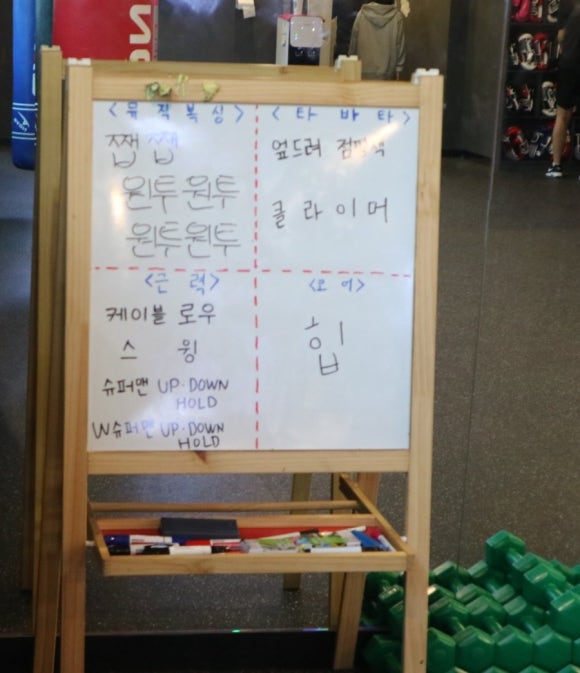 <뮤직복싱>
짭 짭
원투 원투
원투 원투
<타바타>
엎드려 점핑잭
클라이머
<근력>
케이블 로우
스윙
슈퍼맨 UP·DOWN
HOLD
W슈퍼맨 UP·DOWN
HOLD
<코어>
힙